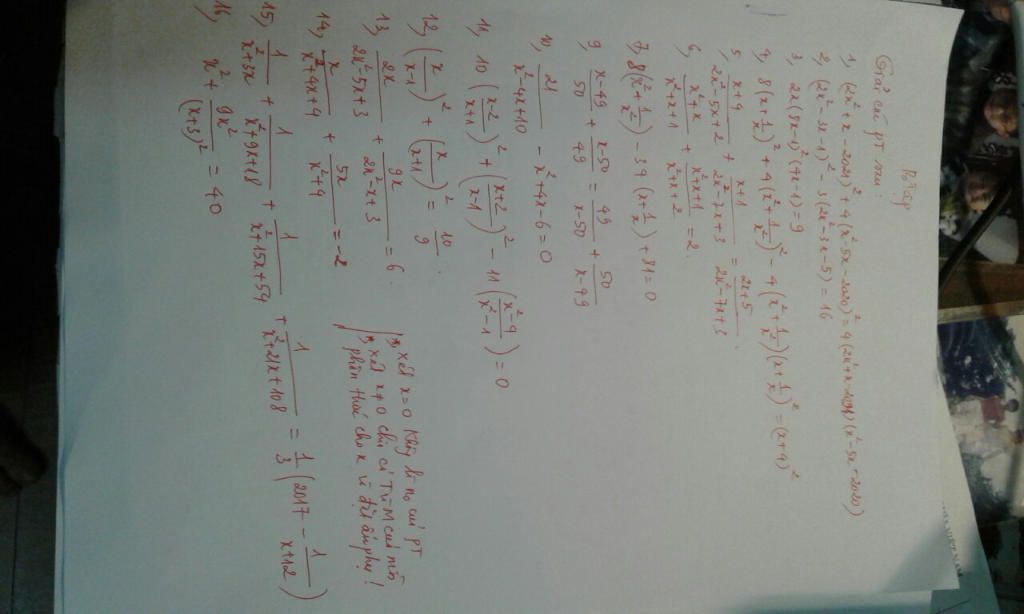 Bài tập
Giải các pt sau:
1, (2x² + x - 2021)² + 4(x² - 5x - 2020)² = 4(2x² + x - 2021)(x² - 5x - 2020)
2, (2x² - 3x - 1)² - 3(2x² - 3x - 5) = 16
3, 2x(8x-1)²(4x-1) = 9
4, 8(x + 1/x)² + 4(x² + 1/x²)² - 4(x² + 1/x²)(x + 1/x)² = (x+4)²
5, (x+4)/(2x² - 5x + 2) + (x+1)/(2x² - 7x + 3) = (2x+5)/(2x² - 7x + 3)
6, (x² + x)/(x² + x + 1) + (x² + x + 1)/(x² + x + 2) = 2.
7, 8(x² + 1/x²) - 34(x + 1/x) + 81 = 0
9, (x-49)/50 + (x-50)/49 = 49/(x-50) + 50/(x-49)
10, 21/(x² - 4x + 10) - x² + 4x - 6 = 0
11, 10((x-2)/(x+1))² + ((x+2)/(x-1))² - 11((x²-4)/(x²-1)) = 0
12, (x/(x-1))² + (x/(x+1))² = 10/9.
13, 2x/(2x² - 5x + 3) + 9x/(2x² - x + 3) = 6.
14, x/(x² + 4x + 4) + 5x/(x² + 4) = -2
xét x = 0 không là no của pt
xét x ≠ 0 chia cả Tử và M của mỗi
phân thức cho x và đặt ẩn phụ!
15, 1/(x² + 3x) + 1/(x² + 9x + 18) + 1/(x² + 15x + 54) + 1/(x² + 21x + 108) = 1/3(2017 - 1/(x+12))
16, x² + 9x²/(x+3)² = 40